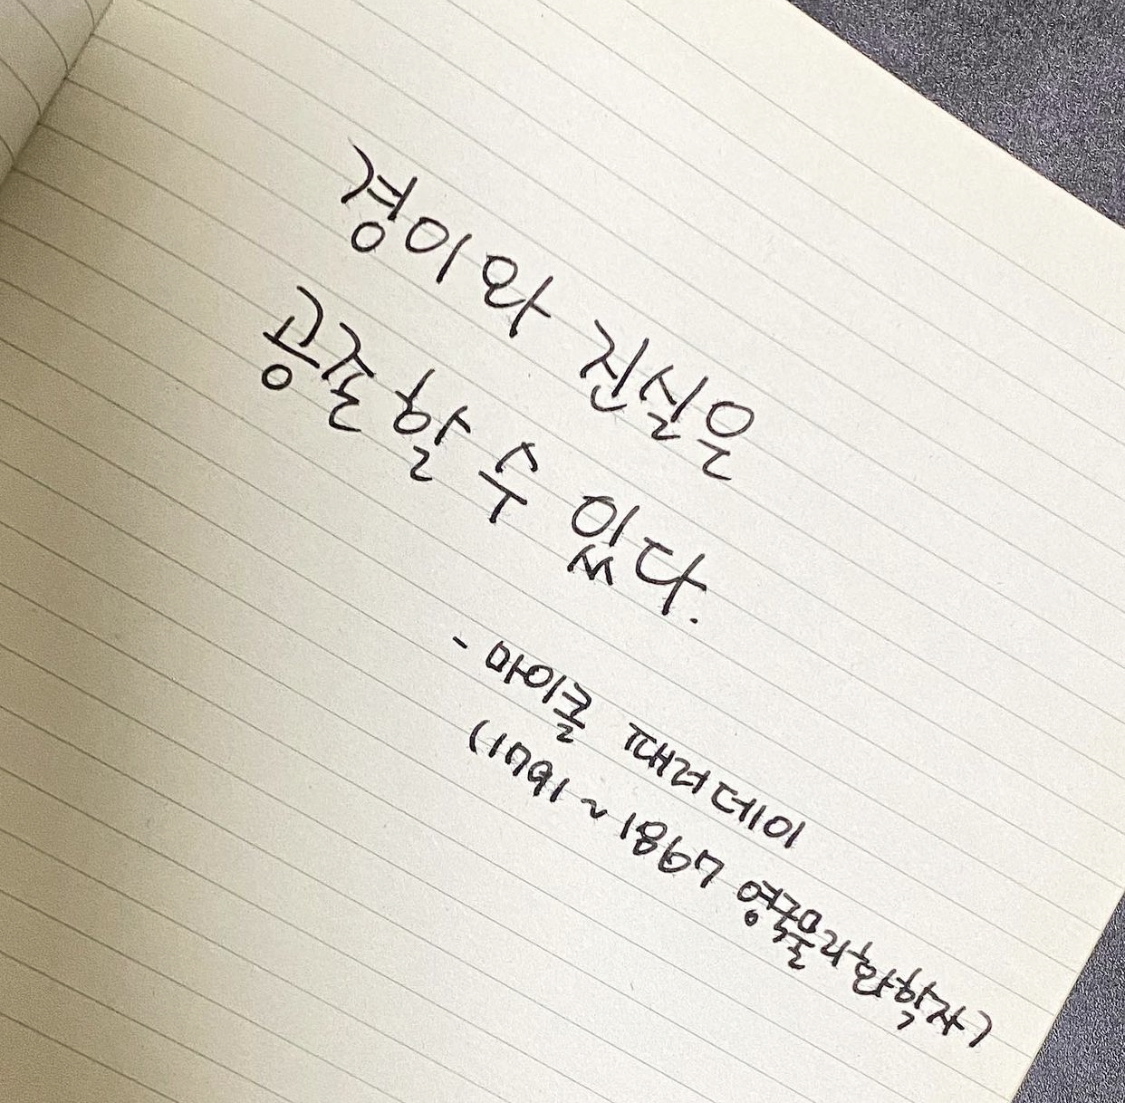 경이와 진실은
공존할 수 있다.
- 마이클 패러데이
(1791~1867 영국물리화학자)